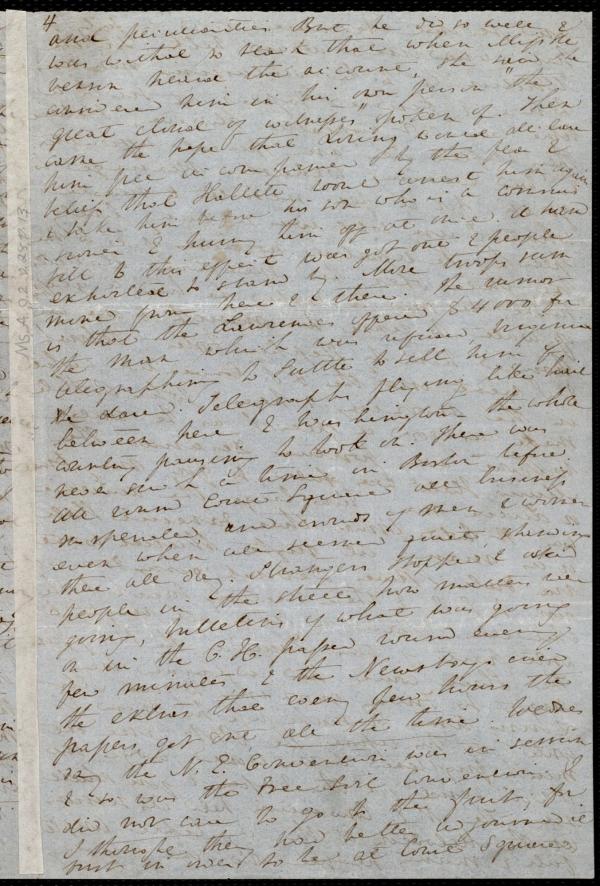 4
and peculiarities But he did so well &
was withal so that when Miss
heard the account, she said she
considered him in his own person "the
great cloud of witnesses" spoken of. Then
came the hope that Loring would declare
him free in compliance by the plea &
belief that Hallett would arrest him again
& take him before his son who is a commis
sioner & hurry him off at once. A hand
bill to this effect was got out & people
exhorted to stand by. More troops sum
moned from here & there. The rumor
is that the Lawrences offered $4000 for
the man which was refused, Virginia
telegraphing to Suttle to sell him if
he dared. Telegraphs flying like hail
between here & Washington the whole
country pausing to look on. There was
never such a time in Boston before
all round Court Square all business
suspended, and crowds of men & women
even when all seemed quiet, standing
there all day. Strangers stopped & asked
people in the street how matters were
going, bulletins of what was going
on in the C. H. passed round every
few minutes & the Newsboys cried
the extras thro every few hours the
papers got one all the time. Wednes
day the N. E. Convention was in session
& so was the Free Soil Convention. I
did not care to go to the first, for
I thought they had better adjourned it
just in order to be at Court Square
MS. A. 9. 2